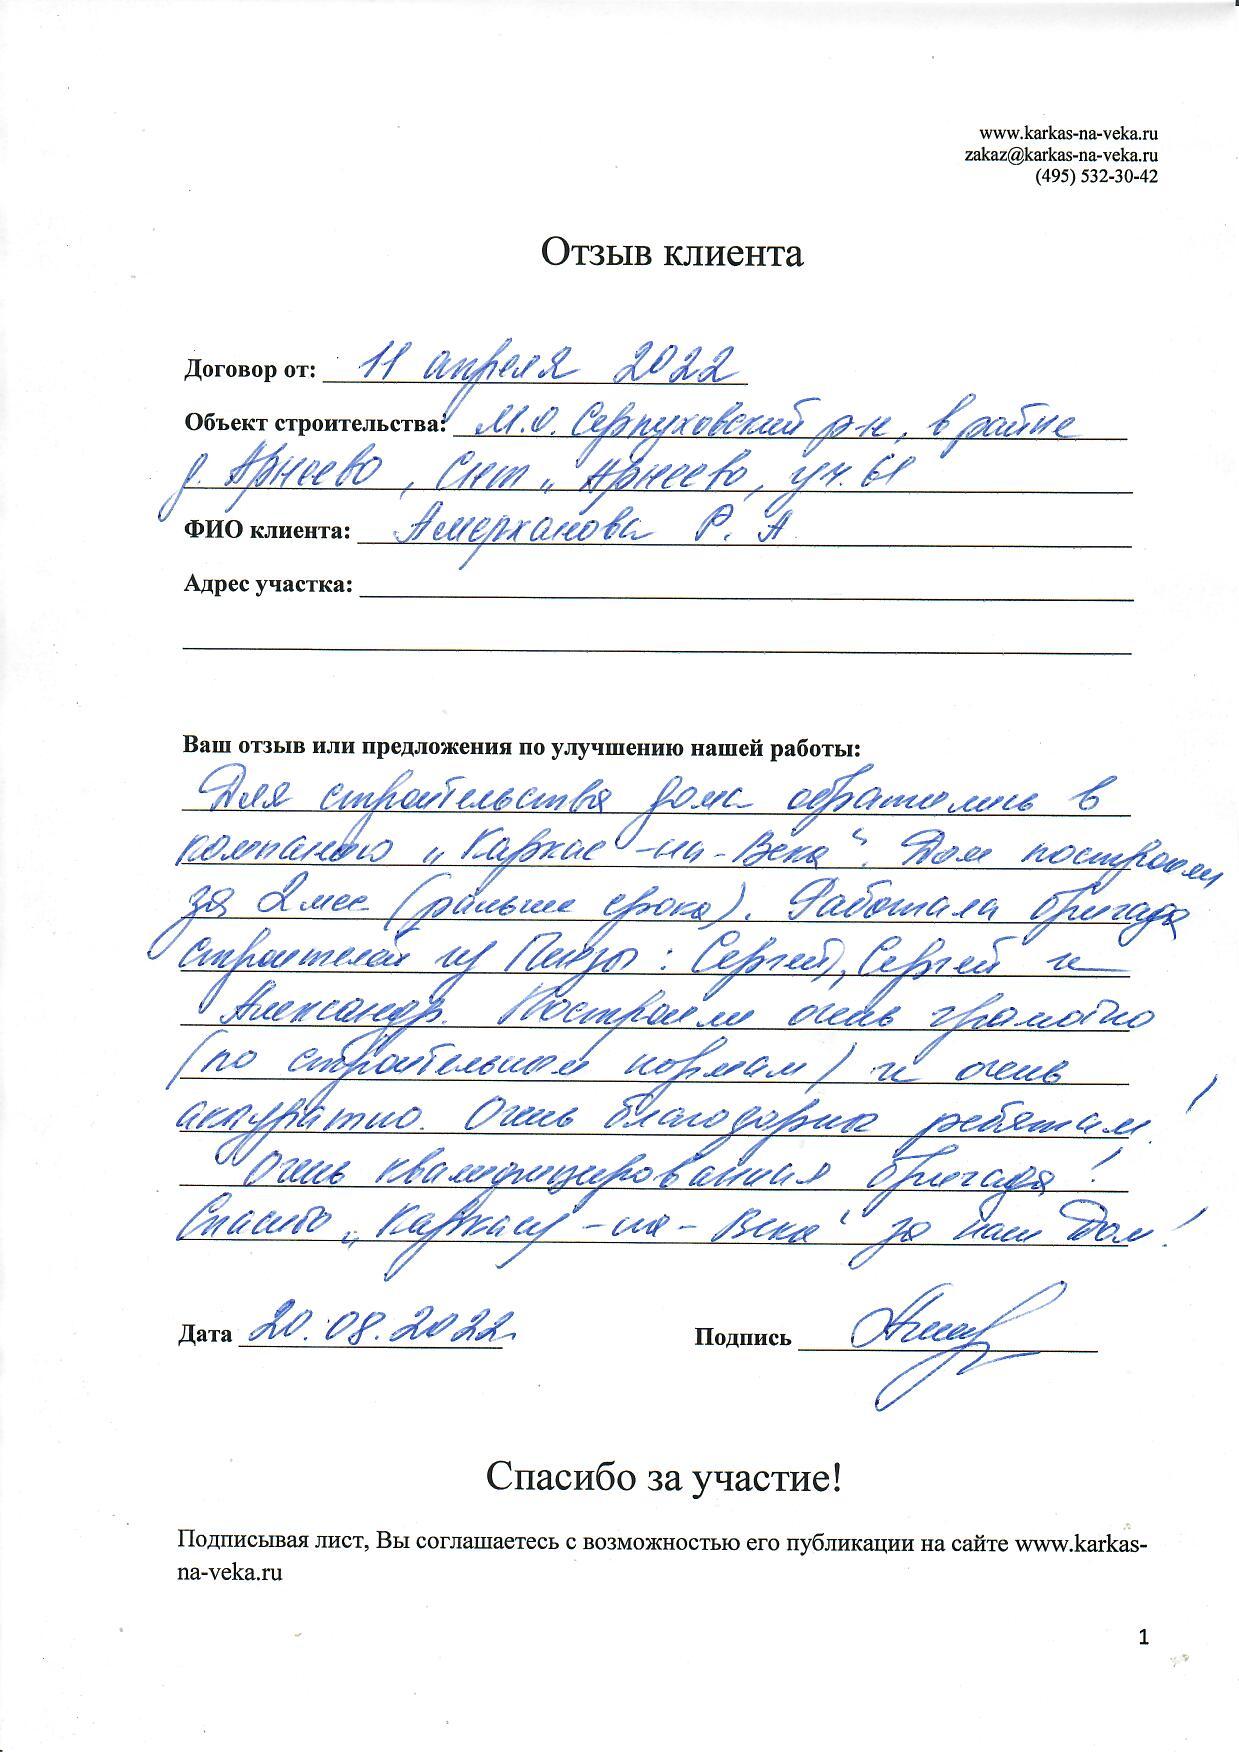 www.karkas-na-veka.ru
zakaz@karkas-na-veka.ru
(495) 532-30-42
Отзыв клиента
Договор от: 11 апреля 2022
Объект строительства: М.О. Серпуховский р-н, в районе
д. Арнеево, Снт „Арнеево, уч. 61
ФИО клиента: Амерханова Р. А
Адрес участка:
Ваш отзыв или предложения по улучшению нашей работы:
Для строительства дома обратились в
компанию „Каркас-на-Века“. Дом построили
за 2 мес (раньше срока). Работала бригада
строителей из Пензы: Сергей, Сергей и
Александр. Построили очень грамотно
(по строительным нормам) и очень
аккуратно. Очень благодарны ребятам!
Очень квалифицированная бригада!
Спасибо „Каркасу-на-Века“ за наш Дом!
Дата 20.08.2022 Подпись
Спасибо за участие!
Подписывая лист, Вы соглашаетесь с возможностью его публикации на сайте www.karkas-
na-veka.ru
1